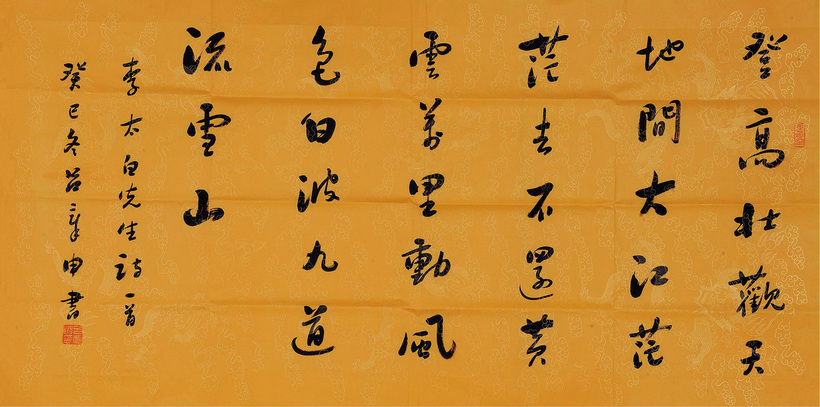 登高壯觀天
地間大江茫
茫去不還黄
雲萬里動風
色白波九道
流雪山
李太白先生詩一首
癸巳冬吕章申書